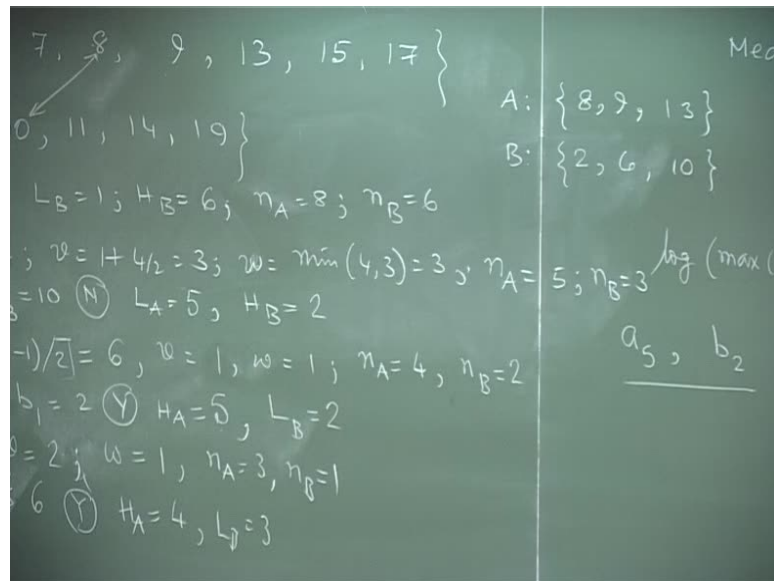 7, 8, 9, 13, 15, 17}
0, 11, 14, 19}
L_B=1; H_B=6; n_A=8; n_B=6
; v=1+4/2=3; w=min(4,3)=3, n_A=5; n_B=3
=10 (N) L_A=5, H_B=2
-1)/2⌉=6, v=1, w=1; n_A=4, n_B=2
b_1=2 (Y) H_A=5, L_B=2
=2; w=1, n_A=3, n_B=1
6 (Y) H_A=4, L_B=3
Med
A: {8, 9, 13}
B: {2, 6, 10}
log (max (
a_5, b_2